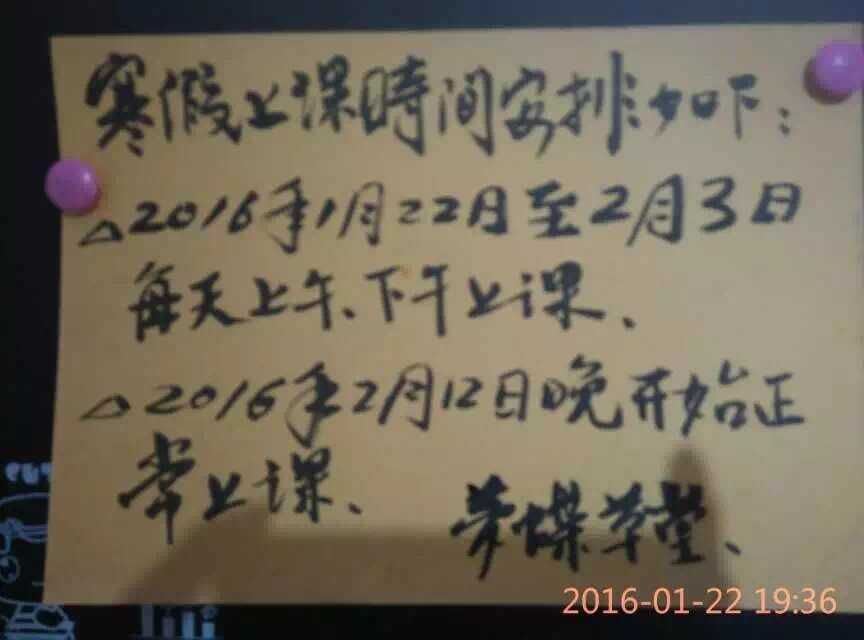 寒假上课時间安排如下：
△2016年1月22日至2月3日
每天上午、下午上课、
△2016年2月12日晚开始正
常上课、
梦蝶草堂、
2016-01-22 19:36
lili